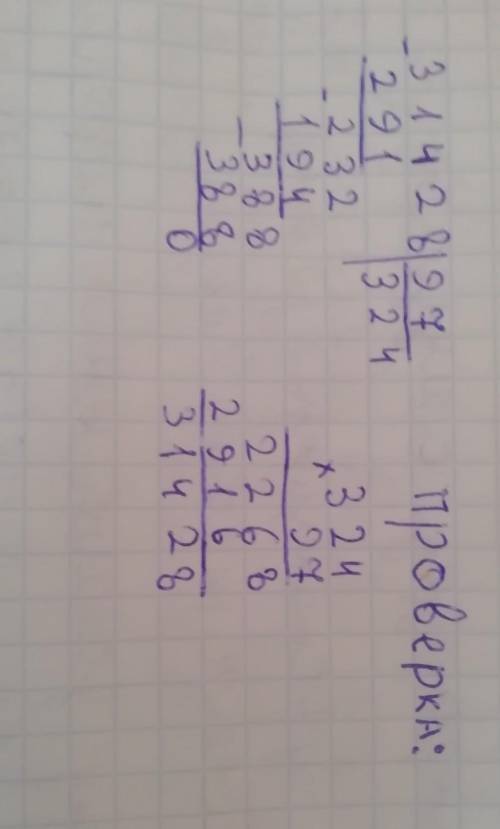 -31428|97
291 324
-232
194
-388
388
0
Проверка:
×324
97
2268
2916
31428